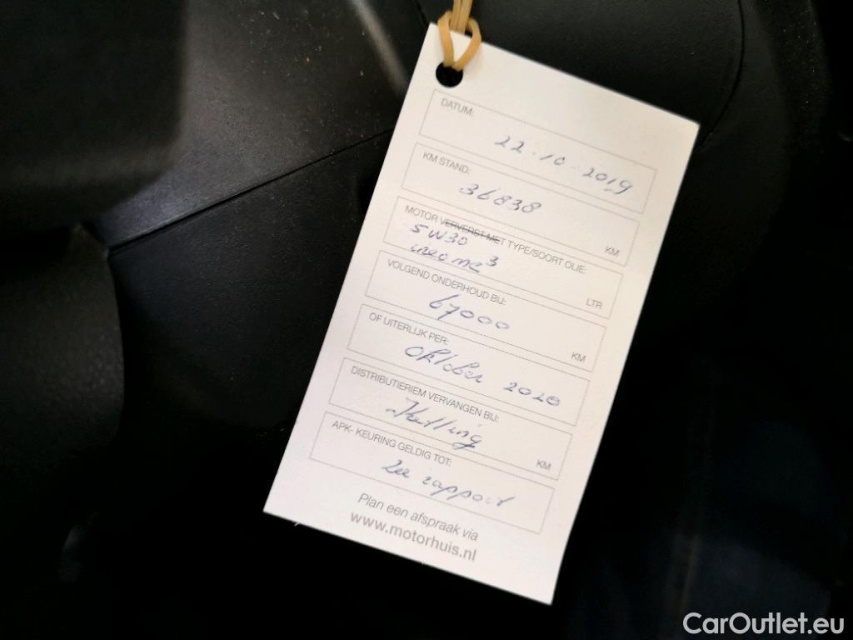 DATUM:
22-10-2019
KM STAND:
36838
KM
MOTOR VERVERST MET TYPE/SOORT OLIE:
5W30
LTR.
VOLGEND ONDERHOUD BIJ:
67000
KM
OF UITERLIJK PER:
Oktober 2020
DISTRIBUTIERIEM VERVANGEN BIJ:
Ketting
KM
APK- KEURING GELDIG TOT:
Zie rapport
Plan een afspraak via
www.motorhuis.nl
CarOutlet.eu